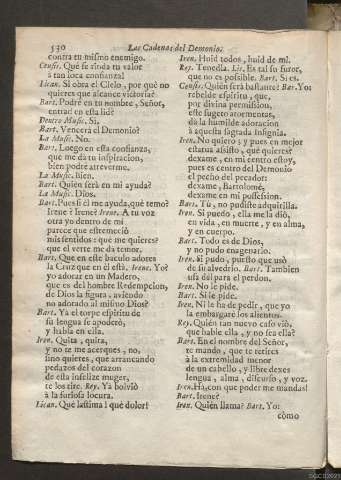 530
Las Cadenas del Demonio.
contra tu mismo enemigo.
Censis. Què se rinda tu valor
à tan loca confianza!
Lican. Si obra el Cielo, por què no
quieres que alcance victoria?
Bart. Podrè en tu nombre, Señor,
entrar en esta lid?
Dentro Music. Si.
Bart. Vencerà el Demonio?
La Music. No.
Bart. Luego en esta confianza,
que me dà tu inspiracion,
bien podrè atreverme.
La Music. Bien.
Bart. Quièn serà en mi ayuda?
La Music. Dios.
Bart. Pues si èl me ayuda, què temo?
Irene? Irene? Irene. A tu voz
otra yo dentro de mi
parece que estremeciò
mis sentidos: què me quieres?
que el verte me dà temor.
Bart. Que en este baculo adores
la Cruz que en èl està. Irene. Yo?
yo adorar en un Madero,
que es del hombre Redempcion,
de Dios la figura, aviendo
no adorado al mismo Dios?
Bart. Ya el torpe espiritu de
su lengua se apoderò,
y habla en ella.
Iren. Quita, quita,
y no te me acerques, no,
sino quieres, que arrancando
pedazos del corazon
de esta infelize muger,
te los tire. Rey. Ya bolviò
à la furiosa locura.
Lican. Què lastima! què dolor!
Iren. Huid todos, huid de mi.
Rey. Tenedla. Lic. Es tal su furor,
que no es possible. Bart. Si es.
Censis. Quièn serà bastante? Bar. Yo:
rebelde espiritu, que,
por divina permission,
este sugeto atormentas,
dà la humilde adoracion
à aquesta sagrada Insignia.
Iren. No quiero; y pues en mejor
estatua assisto, què quieres?
dexame, en mi centro estoy,
pues es centro del Demonio
el pecho del pecador:
dexame, Bartolomè,
dexame en mi possession.
Bart. Tù, no pudiste adquirilla.
Iren. Si puedo, ella me la diò,
en vida, en muerte, y en alma,
y en cuerpo.
Bart. Todo es de Dios,
y no pudo enagenarlo.
Iren. Si pudo, puesto que usò
de su alvedrio. Bart. Tambien
usa dàl para el perdon.
Iren. No le pide.
Bart. Si le pide.
Iren. Ni le ha de pedir, que yo
la embargarè los alientos.
Rey. Quièn tan nuevo caso viò,
que hable ella, y no sea ella?
Bart. En el nombre del Señor,
te mando, que te retires
à la extremidad menor
de un cabello, y libre dexes
lengua, alma, discurso, y voz.
Iren. Ha, con què poder me mandas!
Bart. Irene?
Iren. Quièn llama? Bart. Yo:
còmo